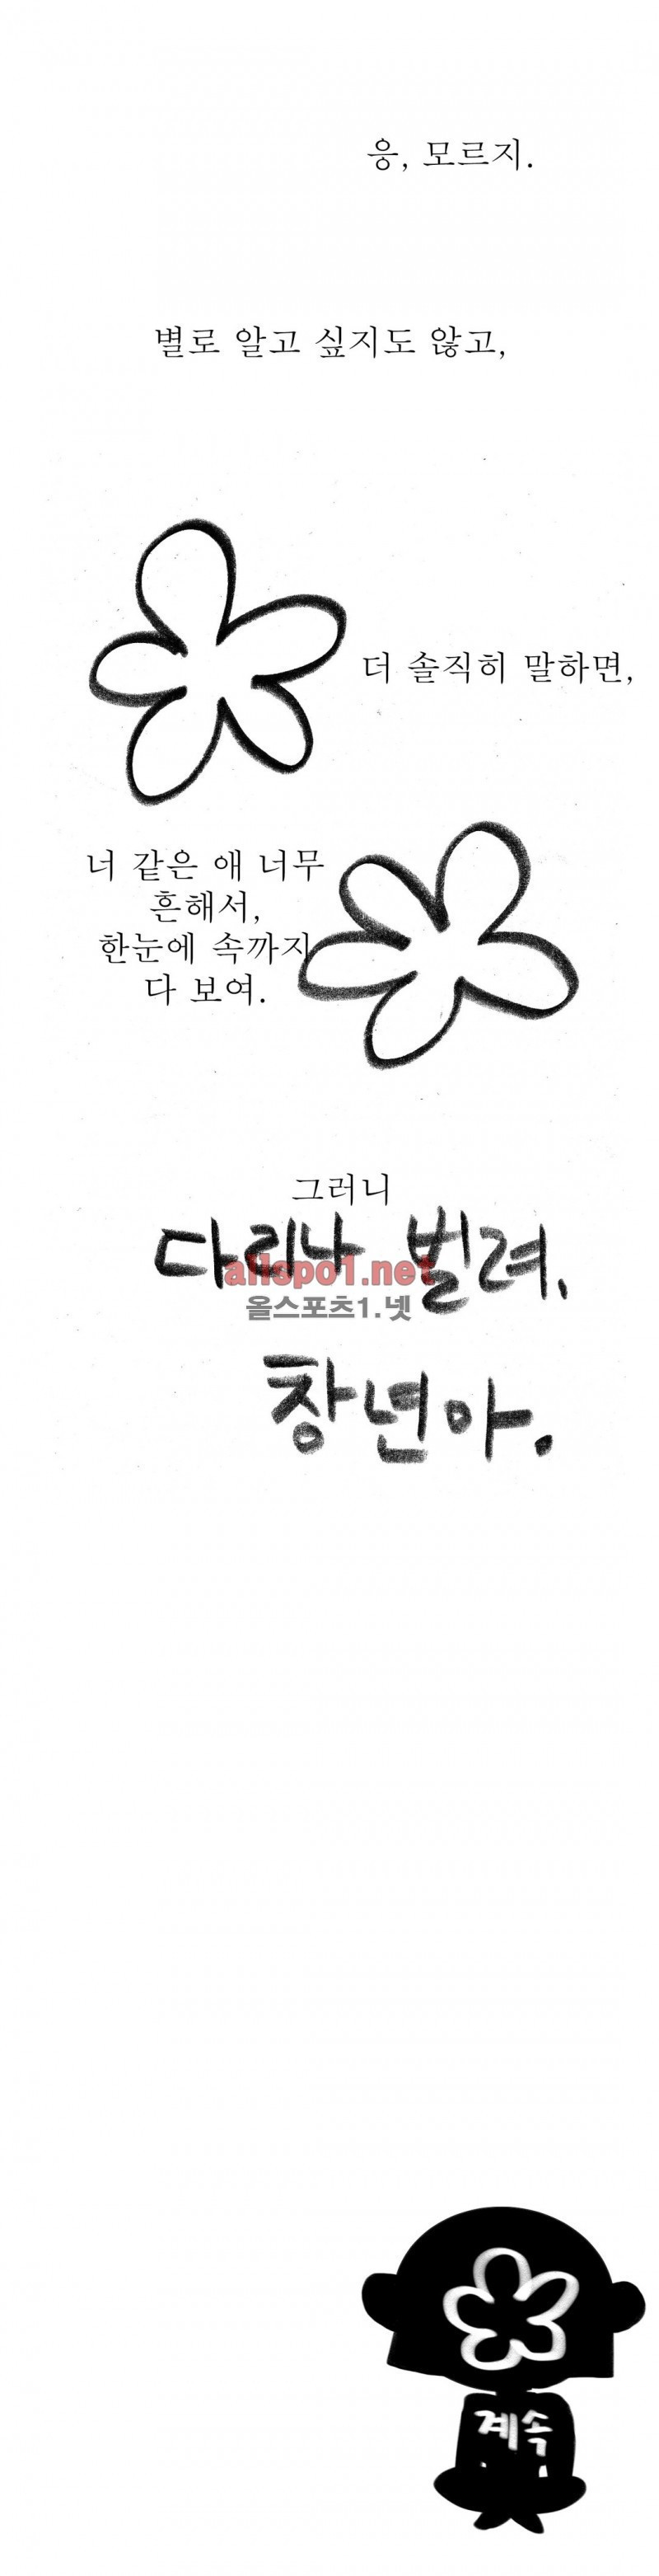 응, 모르지.
별로 알고 싶지도 않고,
더 솔직히 말하면,
너 같은 애 너무
흔해서,
한눈에 속까지
다 보여.
그러니
다리나 벌려.
allspo1.net
올스포츠1.넷
창년아.
계속